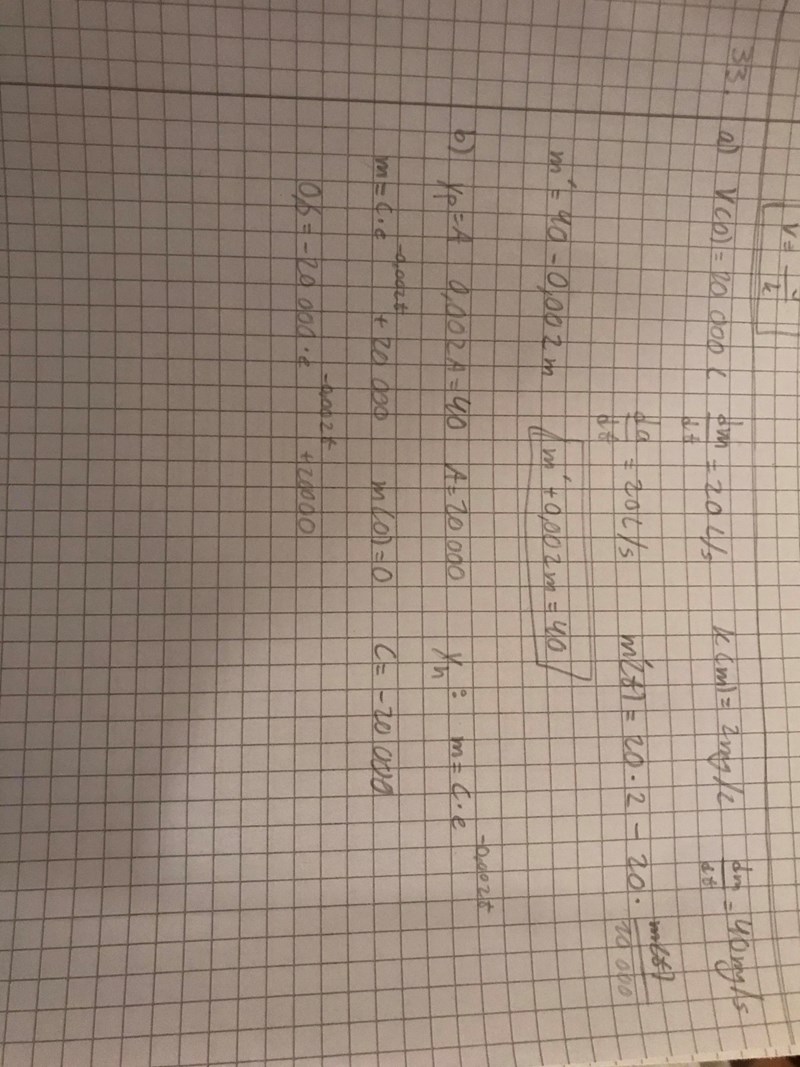 V =
33. a) V(0) = 20 000 L dm/dt = 20 L/s k(m) = 2mg/L dm/dt = 40mg/s
da/dt = 20 L/s m'(t) = 20 · 2 - 20 · m(t)/20 000
m' = 40 - 0,002 m m' + 0,002m = 40
b) yp = A 0,002A = 40 A = 20 000 yh : m = C · e^-0,002t
m = C · e^-0,002t + 20 000 m(0) = 0 C = -20 000
= -20 000 · e^-0,002t + 20000